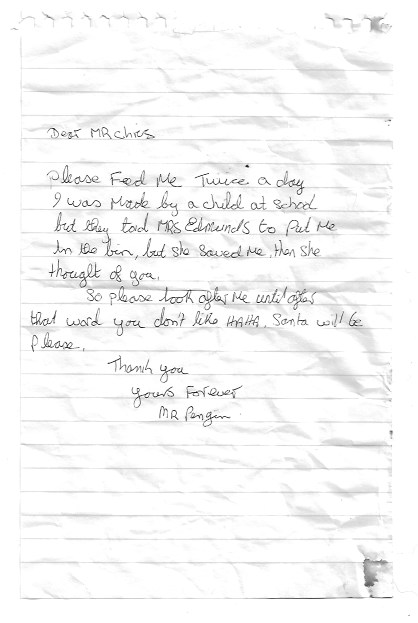 Dear MR Chips
Please Feed Me Twice a day
I was Made by a child at school
but they told MRS Edmunds to Put Me
In the bin, but she saved Me, then she
thought of you.
So please look after Me until after
that word you don't like HAHA. Santa will be
Please.
Thank you
yours Forever
MR Pengin